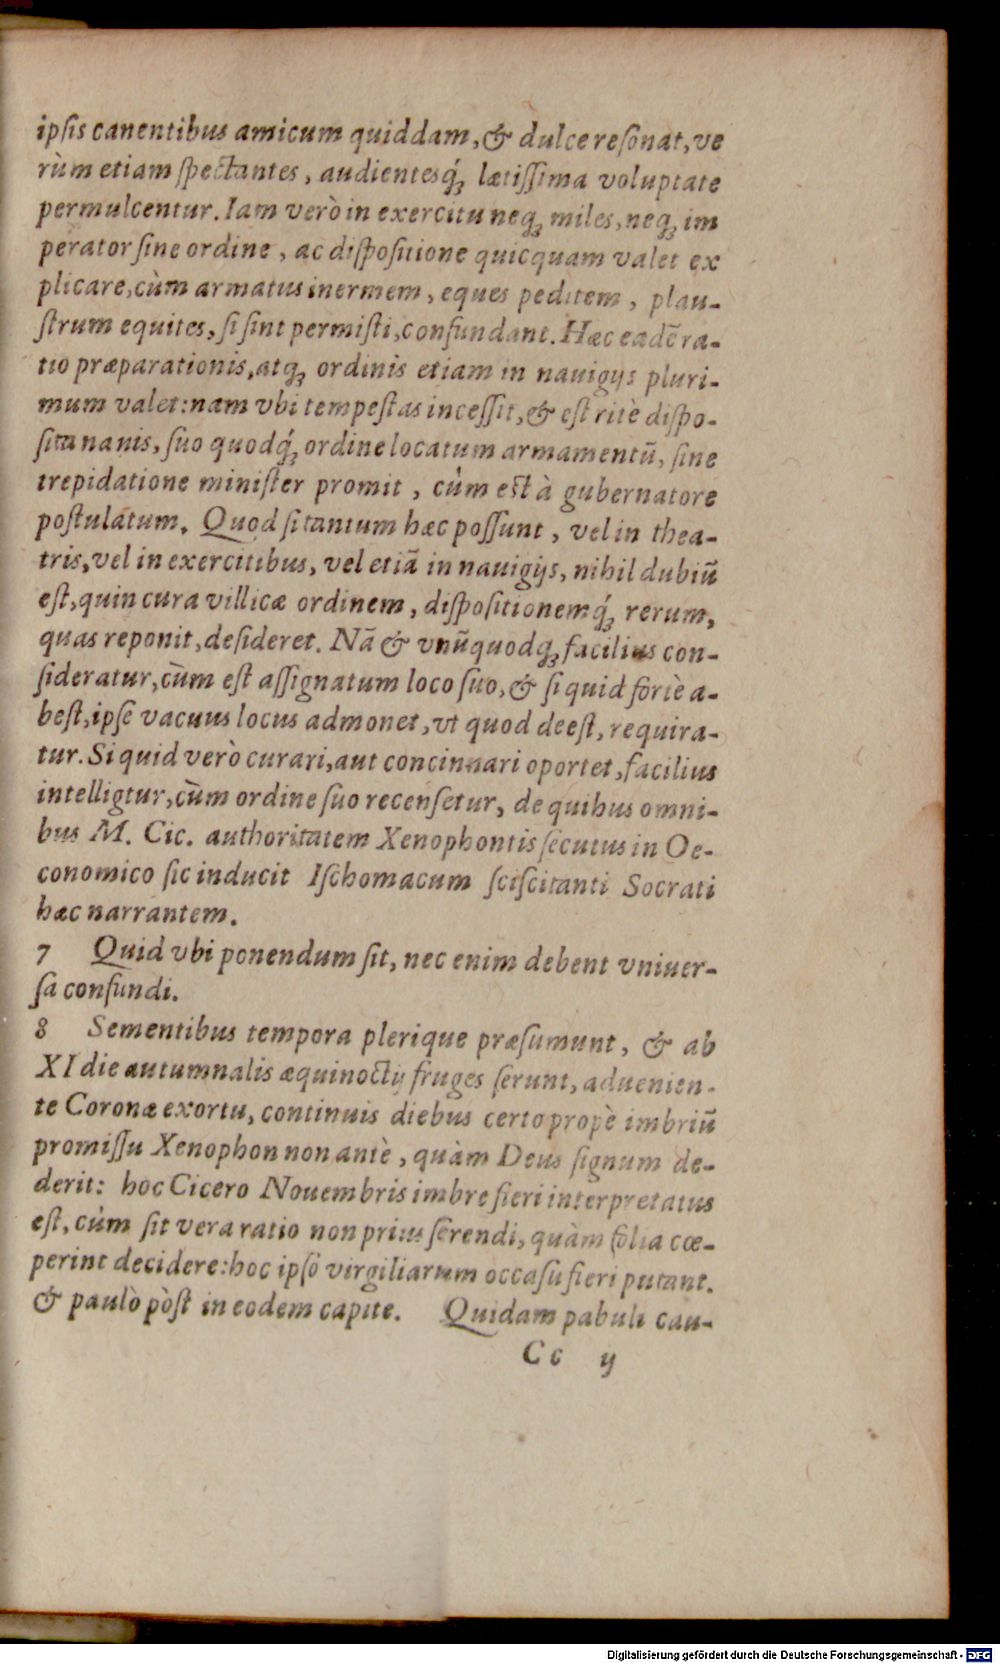 ipſis canentibus amicum quiddam, & dulce reſonat, ve
rùm etiam ſpectantes, audientesq́; lætiſſima voluptate
permulcentur. Iam verò in exercitu neq; miles, neq; im
perator ſine ordine, ac diſpoſitione quicquam valet ex
plicare, cùm armatus inermem, eques peditem, plau-
ſtrum equites, ſi ſint permiſti, confundant. Hæc eadē ra-
tio præparationis, atq; ordinis etiam in nauigijs pluri-
mum valet: nam vbi tempeſtas inceſſit, & eſt ritè diſpo-
ſita nauis, ſuo quodq́; ordine locatum armamentū, ſine
trepidatione miniſter promit, cùm est à gubernatore
poſtulatum. Quod ſi tantum hæc poſſunt, vel in thea-
tris, vel in exercitibus, vel etiā in nauigijs, nihil dubiū
eſt, quin cura villicæ ordinem, diſpoſitionemq́; rerum,
quas reponit, deſideret. Nā & vnūquodq; facilius con-
ſideratur, cùm eſt aſſignatum loco ſuo, & ſi quid fortè a-
beſt, ipſe vacuus locus admonet, vt quod deeſt, requira-
tur. Si quid verò curari, aut concinnari oportet, facilius
intelligtur, cùm ordine ſuo recenſetur, de quibus omni-
bus M. Cic. authoritatem Xenophontis ſecutus in Oe-
conomico ſic inducit Iſchomacum ſciſcitanti Socrati
hæc narrantem.
7 Quid vbi ponendum ſit, nec enim debent vniuer-
ſa confundi.
8 Sementibus tempora plerique præſumunt, & ab
XI die autumnalis æquinoctij fruges ſerunt, aduenien-
te Coronæ exortu, continuis diebus certo propè imbriū
promiſſu Xenophon non antè, quàm Deus ſignum de-
derit: hoc Cicero Nouembris imbre fieri interpretatus
eſt, cùm ſit vera ratio non prius ſerendi, quàm folia cœ-
perint decidere: hoc ipſo virgiliarum occaſu fieri putant.
& paulò pòſt in eodem capite. Quidam pabuli cau-
Cc ij
Digitalisierung gefördert durch die Deutsche Forschungsgemeinschaft - DFG